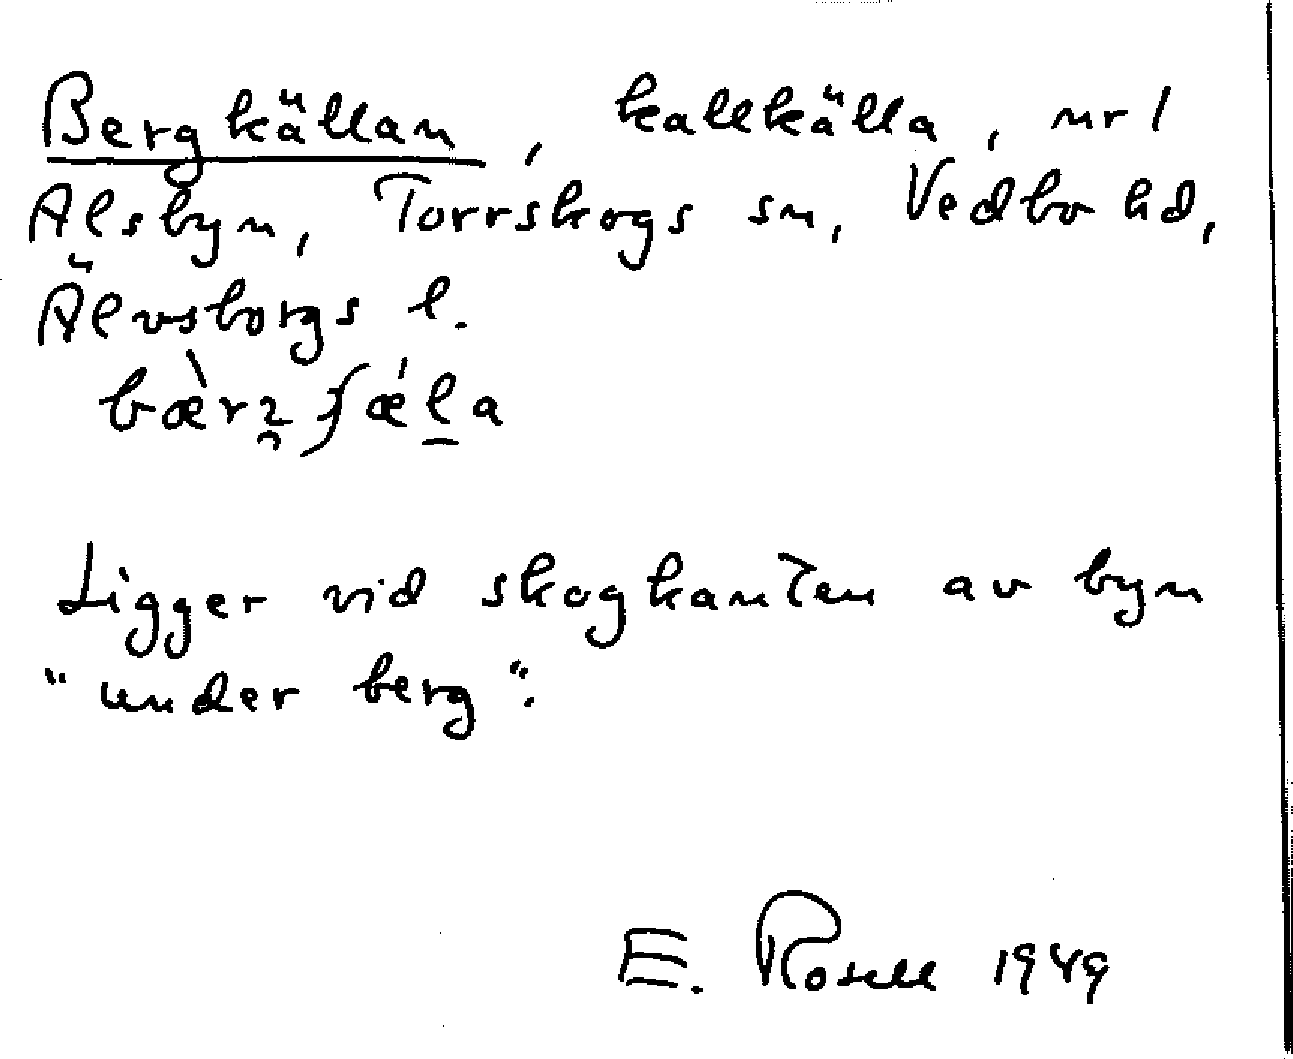 Bergkällan, kallkälla, nr 1
Älsbyn, Torrskogs sn, Vedbo hd,
Älvsborgs l.
Ligger vid skogkanten av byn
"under berg".
E. Rosell 1949